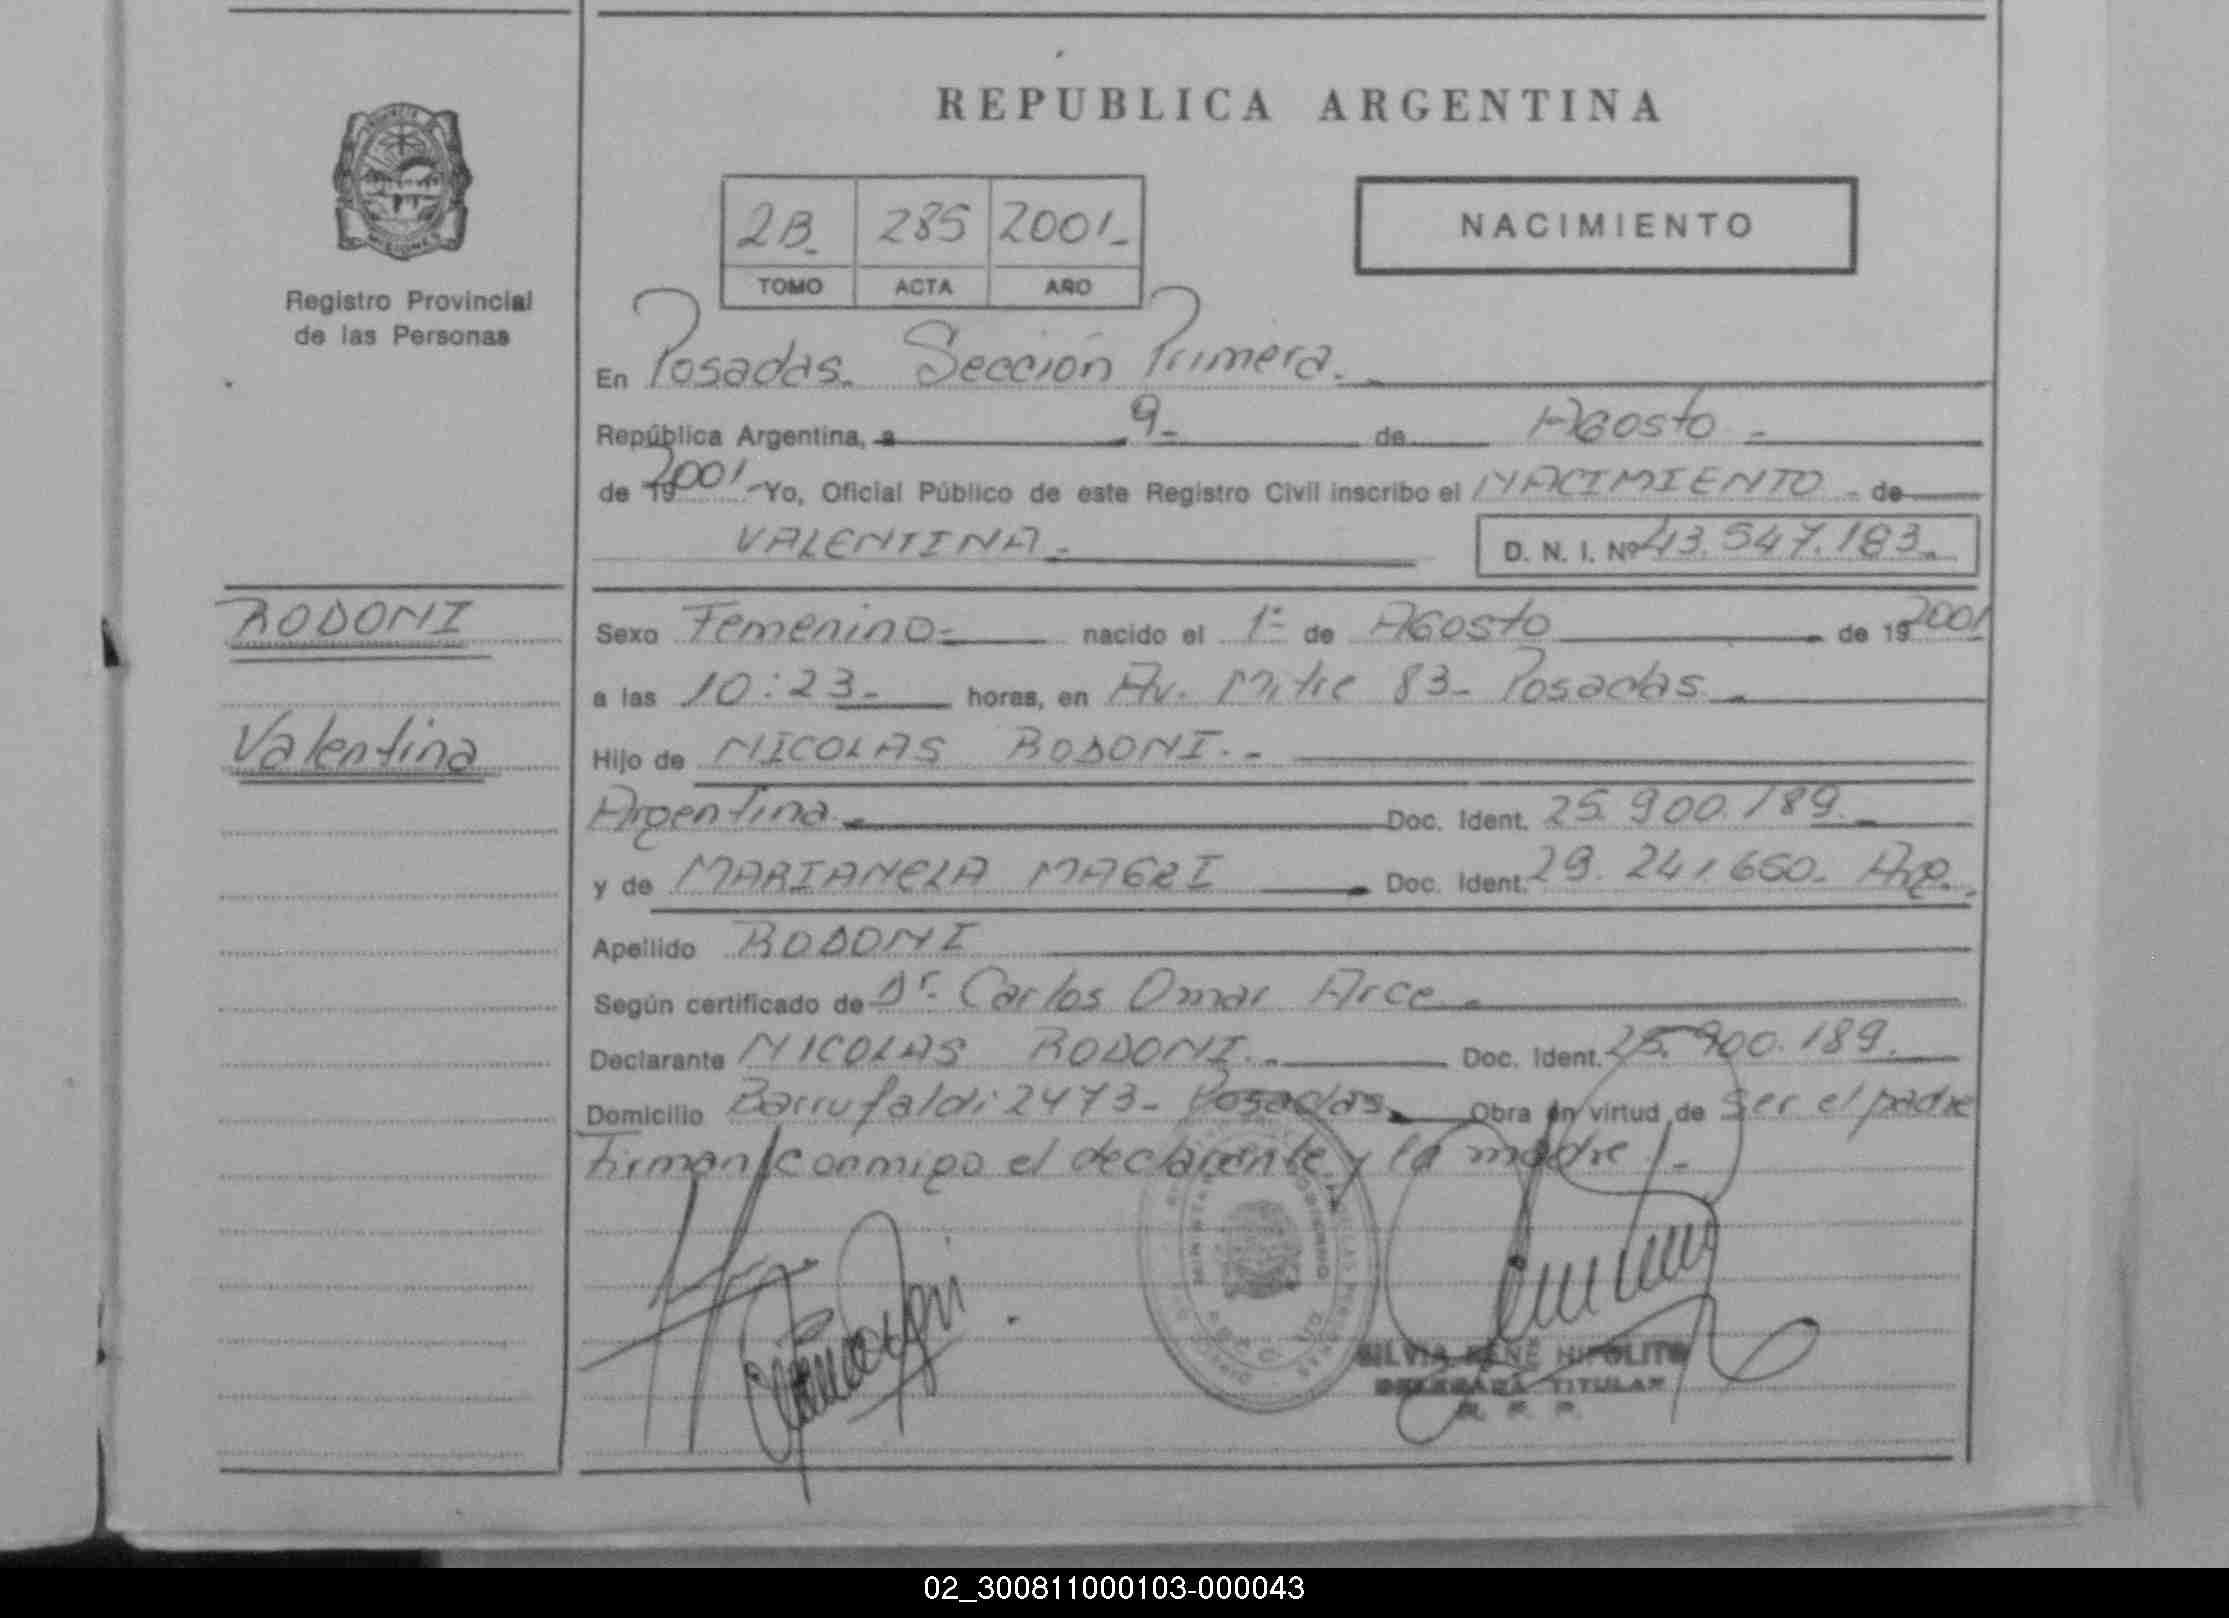 REPUBLICA ARGENTINA
MISIONES
Registro Provincial
de las Personas
2B. 285 2001.
TOMO ACTA AÑO
NACIMIENTO
En Posadas. Sección Primera.
República Argentina, a 9 de Agosto
de 19 2001 Yo, Oficial Público de este Registro Civil inscribo el NACIMIENTO de
VALENTINA D. N. I. Nº 43.547.183
RODONI
Sexo Femenino nacido el 1º de Agosto de 19 2001
a las 10:23 horas, en Av. Mitre 83 - Posadas
Valentina
Hijo de NICOLAS RODONI.
Argentina Doc. Ident. 25.900.189.
y de MARIANELA MAGRI Doc. Ident. 29.241.660. Arg.
Apellido RODONI
Según certificado de Dr. Carlos Omar Arce
Declarante NICOLAS RODONI. Doc. Ident. 25.900.189.
Domicilio Barrufaldi 2473 - Posadas Obra en virtud de ser el padre
Firman conmigo el declarante y la madre
SILVIA RENE HIPOLITO
DELEGADA TITULAR
R. P. P.
02_300811000103-000043